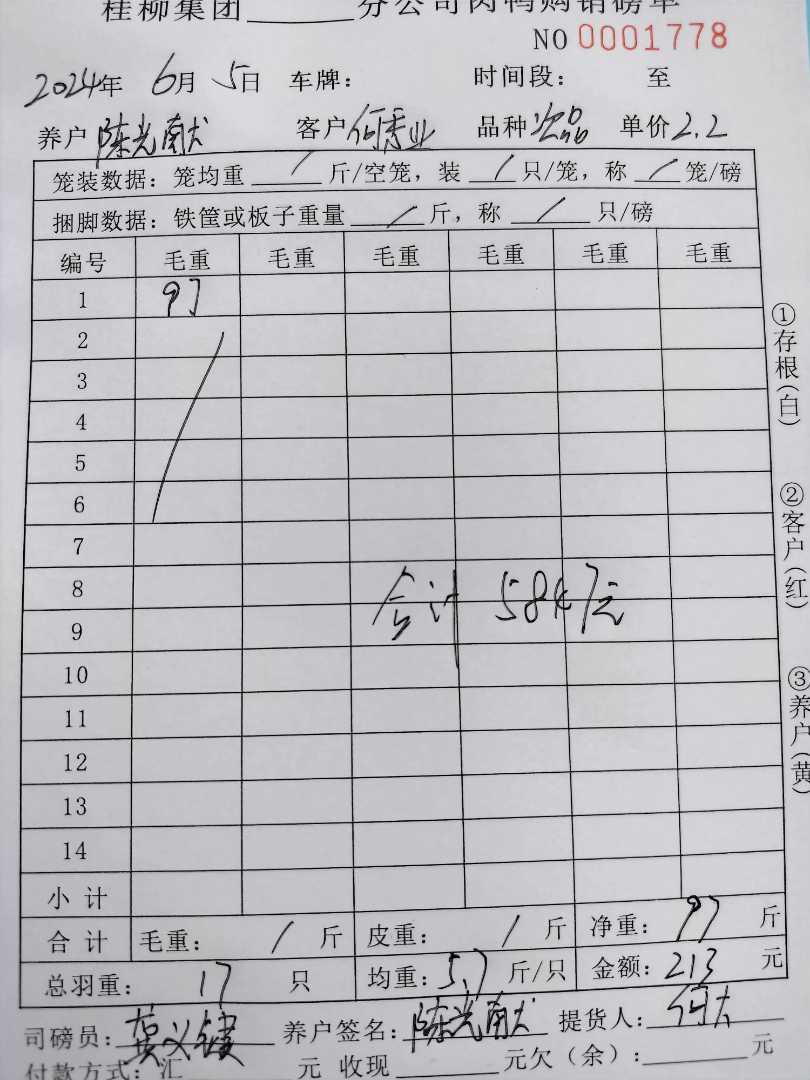 桂柳集团______分公司肉鸭购销磅单
NO 0001778
2024年 6月 5日 车牌: 时间段: 至
养户 陈光献 客户 何秀业 品种 次品 单价 2.2
笼装数据: 笼均重 / 斤/空笼, 装 / 只/笼, 称 / 笼/磅
捆脚数据: 铁筐或板子重量 / 斤, 称 / 只/磅
编号 毛重 毛重 毛重 毛重 毛重 毛重
1 97
2
3
4
5
6
7
8
合计 5847元
9
10
11
12
13
14
小计
合计 毛重: / 斤 皮重: / 斤 净重: 97 斤
总羽重: 17 只 均重: 5.7 斤/只 金额: 213 元
司磅员: 养户签名: 陈光献 提货人:
付款方式: 汇 元 收现______元欠(余):______元
①存根(白)
②客户(红)
③养户(黄)